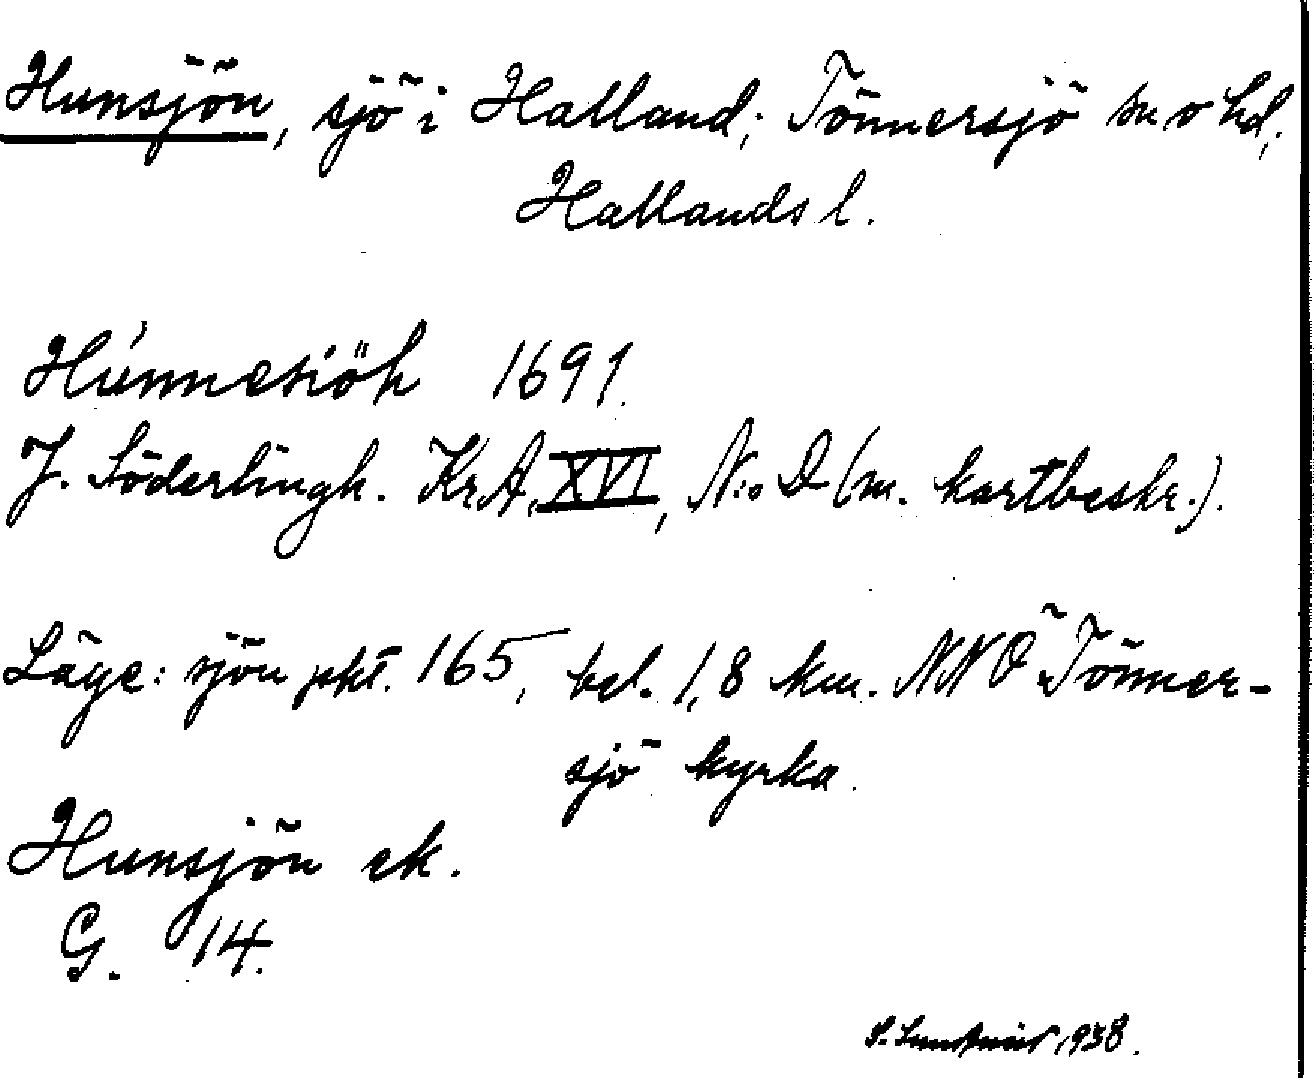 Hunsjön, sjö i Halland; Tönnersjö sn o hd,
Hallands l.
Húnnesiöh 1691.
J. Söderlingh. KrA, XVI, N:o D (m. kartbeskr.).
Läge: sjön pkt. 165, bel. 1,8 km. NNÖ Tönner-
sjö kyrka.
Hunsjön ek.
G. 14.
S. 1938.